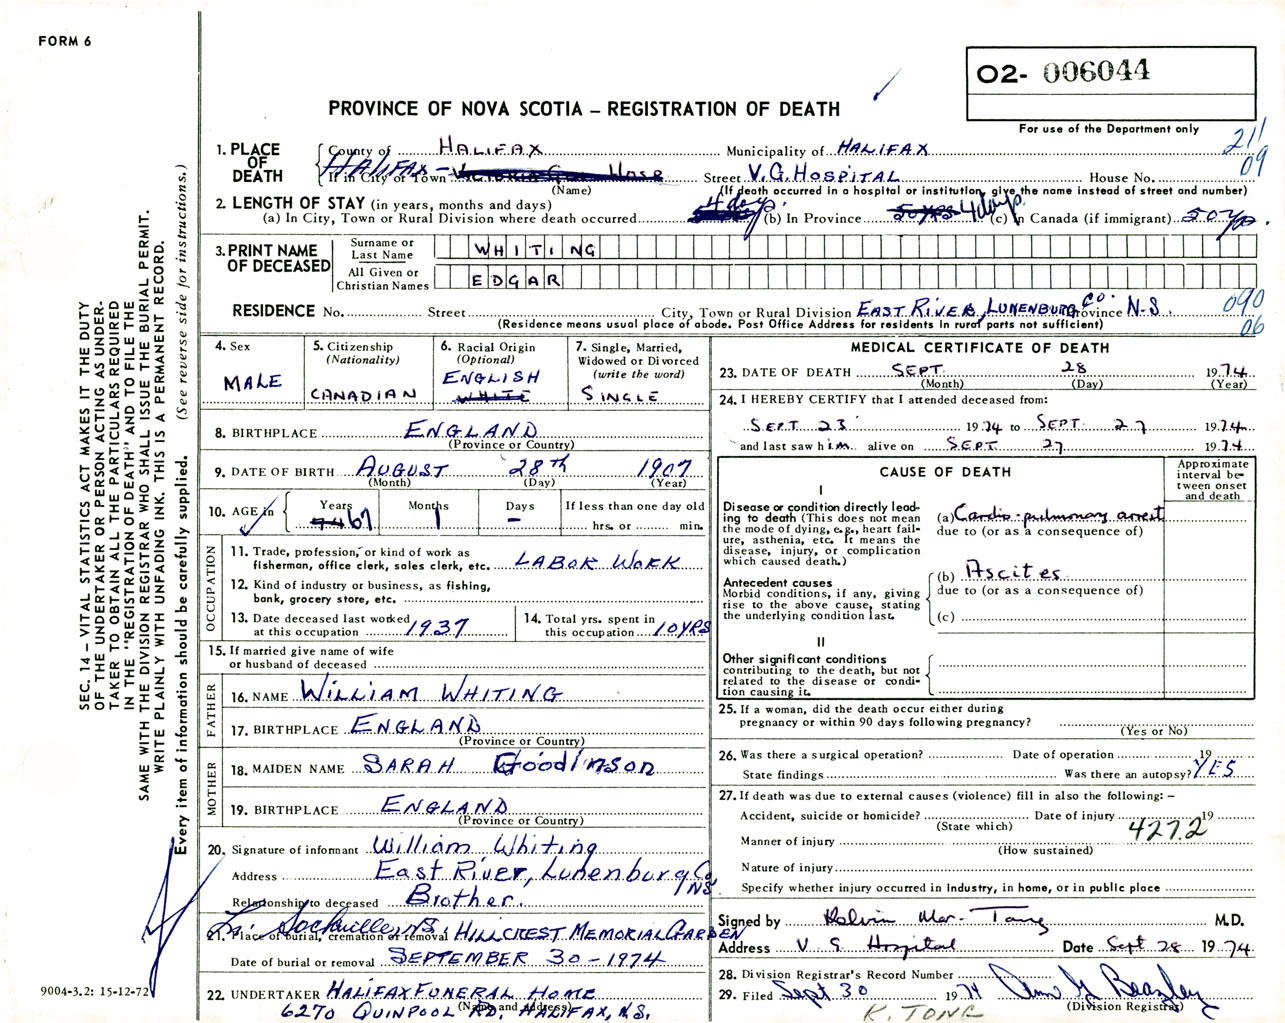 FORM 6
O2- 006044
PROVINCE OF NOVA SCOTIA – REGISTRATION OF DEATH
For use of the Department only
211
09
1. PLACE OF DEATH
County of HALIFAX Municipality of HALIFAX
HALIFAX – If in City or Town Street V.G. HOSPITAL House No.
(Name) (If death occurred in a hospital or institution, give the name instead of street and number)
2. LENGTH OF STAY (in years, months and days)
(a) In City, Town or Rural Division where death occurred 4 days. (b) In Province 50 YRS 4 days. (c) In Canada (if immigrant) 50 yrs.
3. PRINT NAME OF DECEASED
Surname or Last Name WHITING
All Given or Christian Names EDGAR
RESIDENCE No. Street City, Town or Rural Division EAST RIVER, LUNENBURG CO. Province N.S.
(Residence means usual place of abode. Post Office Address for residents in rural parts not sufficient)
090
06
4. Sex
MALE
5. Citizenship
(Nationality)
CANADIAN
6. Racial Origin
(Optional)
ENGLISH
WHITE
7. Single, Married, Widowed or Divorced
(write the word)
SINGLE
8. BIRTHPLACE ENGLAND
(Province or Country)
9. DATE OF BIRTH AUGUST 28th 1907
(Month) (Day) (Year)
10. AGE in Years 67 Months 1 Days –
If less than one day old
hrs. or min.
OCCUPATION
11. Trade, profession, or kind of work as
fisherman, office clerk, sales clerk, etc. LABOR WORK
12. Kind of industry or business, as fishing,
bank, grocery store, etc.
13. Date deceased last worked
at this occupation 1937
14. Total yrs. spent in
this occupation 10 YRS
15. If married give name of wife
or husband of deceased
FATHER
16. NAME WILLIAM WHITING
17. BIRTHPLACE ENGLAND
(Province or Country)
MOTHER
18. MAIDEN NAME SARAH Goodinson
19. BIRTHPLACE ENGLAND
(Province or Country)
20. Signature of informant William Whiting
Address East River, Lunenburg Co. NS.
Relationship to deceased Brother.
Lr. Sackville N.S.
21. Place of burial, cremation or removal HILLCREST MEMORIAL GARDEN
Date of burial or removal SEPTEMBER 30 – 1974
22. UNDERTAKER HALIFAX FUNERAL HOME
(Name and address)
6270 QUINPOOL RD, HALIFAX, N.S.
MEDICAL CERTIFICATE OF DEATH
23. DATE OF DEATH SEPT. 28 1974
(Month) (Day) (Year)
24. I HEREBY CERTIFY that I attended deceased from:
SEPT 23 1974 to SEPT. 27 1974
and last saw him alive on SEPT. 27 1974
CAUSE OF DEATH
Approximate interval between onset and death
I
Disease or condition directly leading to death (This does not mean
the mode of dying, e.g., heart failure, asthenia, etc. It means the
disease, injury, or complication
which caused death.)
(a) Cardio-pulmonary arrest
due to (or as a consequence of)
Antecedent causes
Morbid conditions, if any, giving
rise to the above cause, stating
the underlying condition last.
(b) Ascites
due to (or as a consequence of)
(c)
II
Other significant conditions
contributing to the death, but not
related to the disease or condition causing it.
25. If a woman, did the death occur either during
pregnancy or within 90 days following pregnancy?
(Yes or No)
26. Was there a surgical operation? Date of operation 19
State findings Was there an autopsy? YES
27. If death was due to external causes (violence) fill in also the following: –
Accident, suicide or homicide? Date of injury 19
(State which)
427.2
Manner of injury
(How sustained)
Nature of injury
Specify whether injury occurred in Industry, in home, or in public place
Signed by Kelvin Tong M.D.
Address V G Hospital Date Sept 28 1974
28. Division Registrar's Record Number
29. Filed Sept 30 1974 Ann G Beazley
(Division Registrar)
K. TONG
SEC. 14 – VITAL STATISTICS ACT MAKES IT THE DUTY
OF THE UNDERTAKER OR PERSON ACTING AS UNDER-
TAKER TO OBTAIN ALL THE PARTICULARS REQUIRED
IN THE "REGISTRATION OF DEATH" AND TO FILE THE
SAME WITH THE DIVISION REGISTRAR WHO SHALL ISSUE THE BURIAL PERMIT.
WRITE PLAINLY WITH UNFADING INK. THIS IS A PERMANENT RECORD.
Every item of information should be carefully supplied. (See reverse side for instructions.)
9004-3.2: 15-12-72